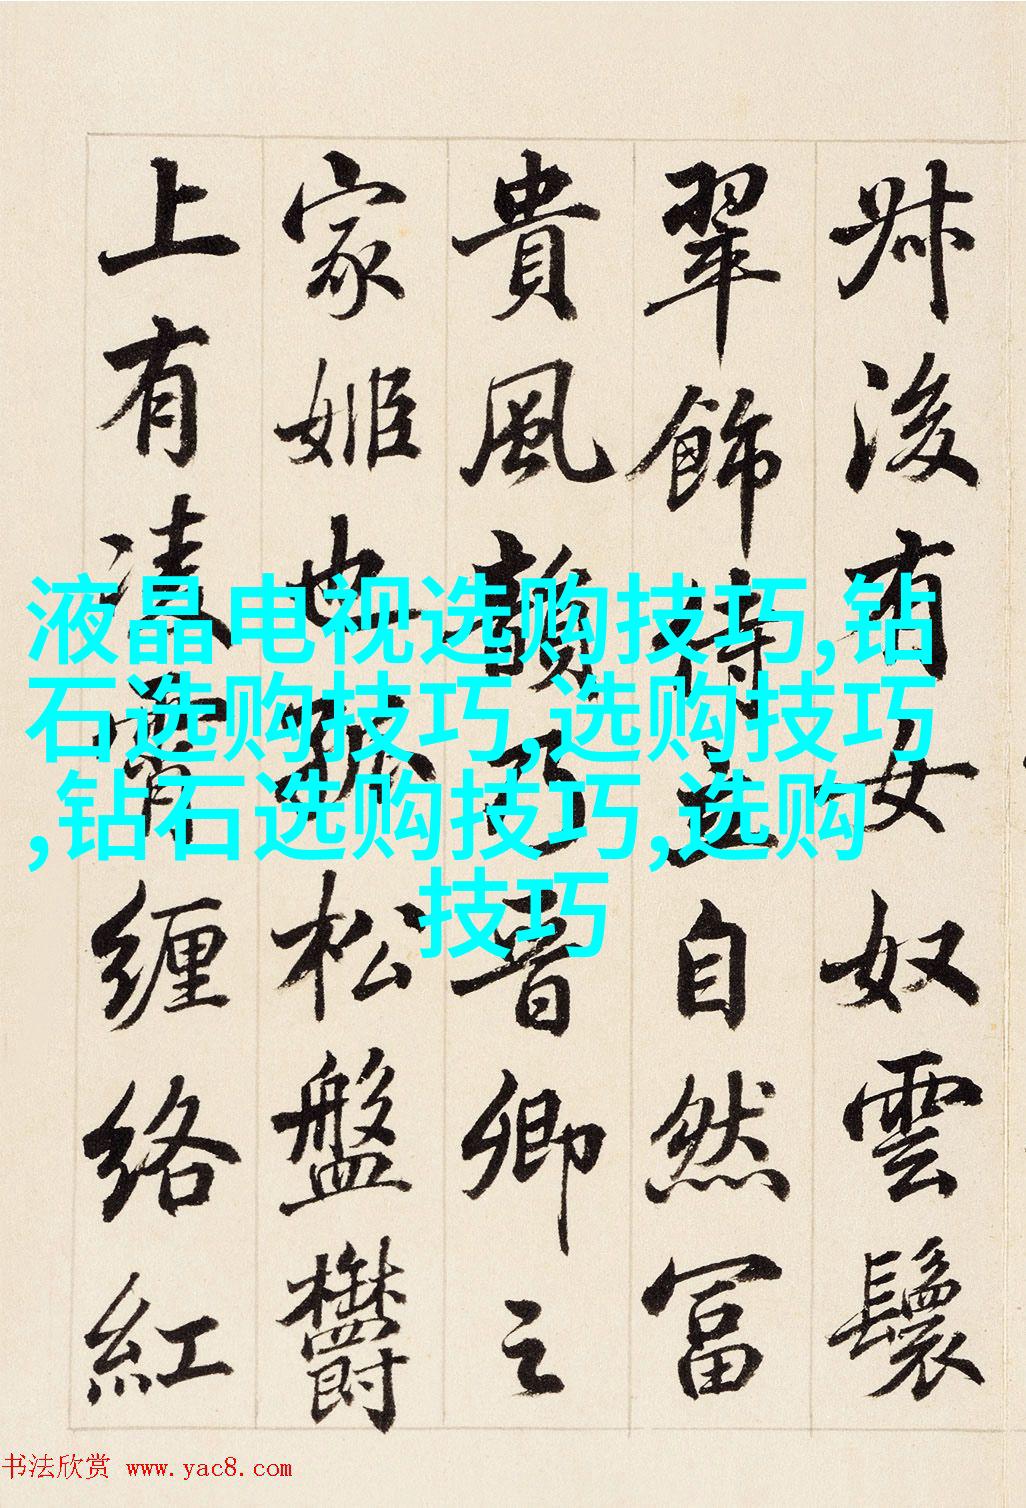 叔後有女奴雲鬟
翠飾侍立自然富
貴風韻乃晉卿之
家姬也孤松盤鬱
上有凌霄纏絡紅
液晶电视选购技巧,钻
石选购技巧,选购技巧
,钻石选购技巧,选购
技巧
书法欣赏 www.yac8.com